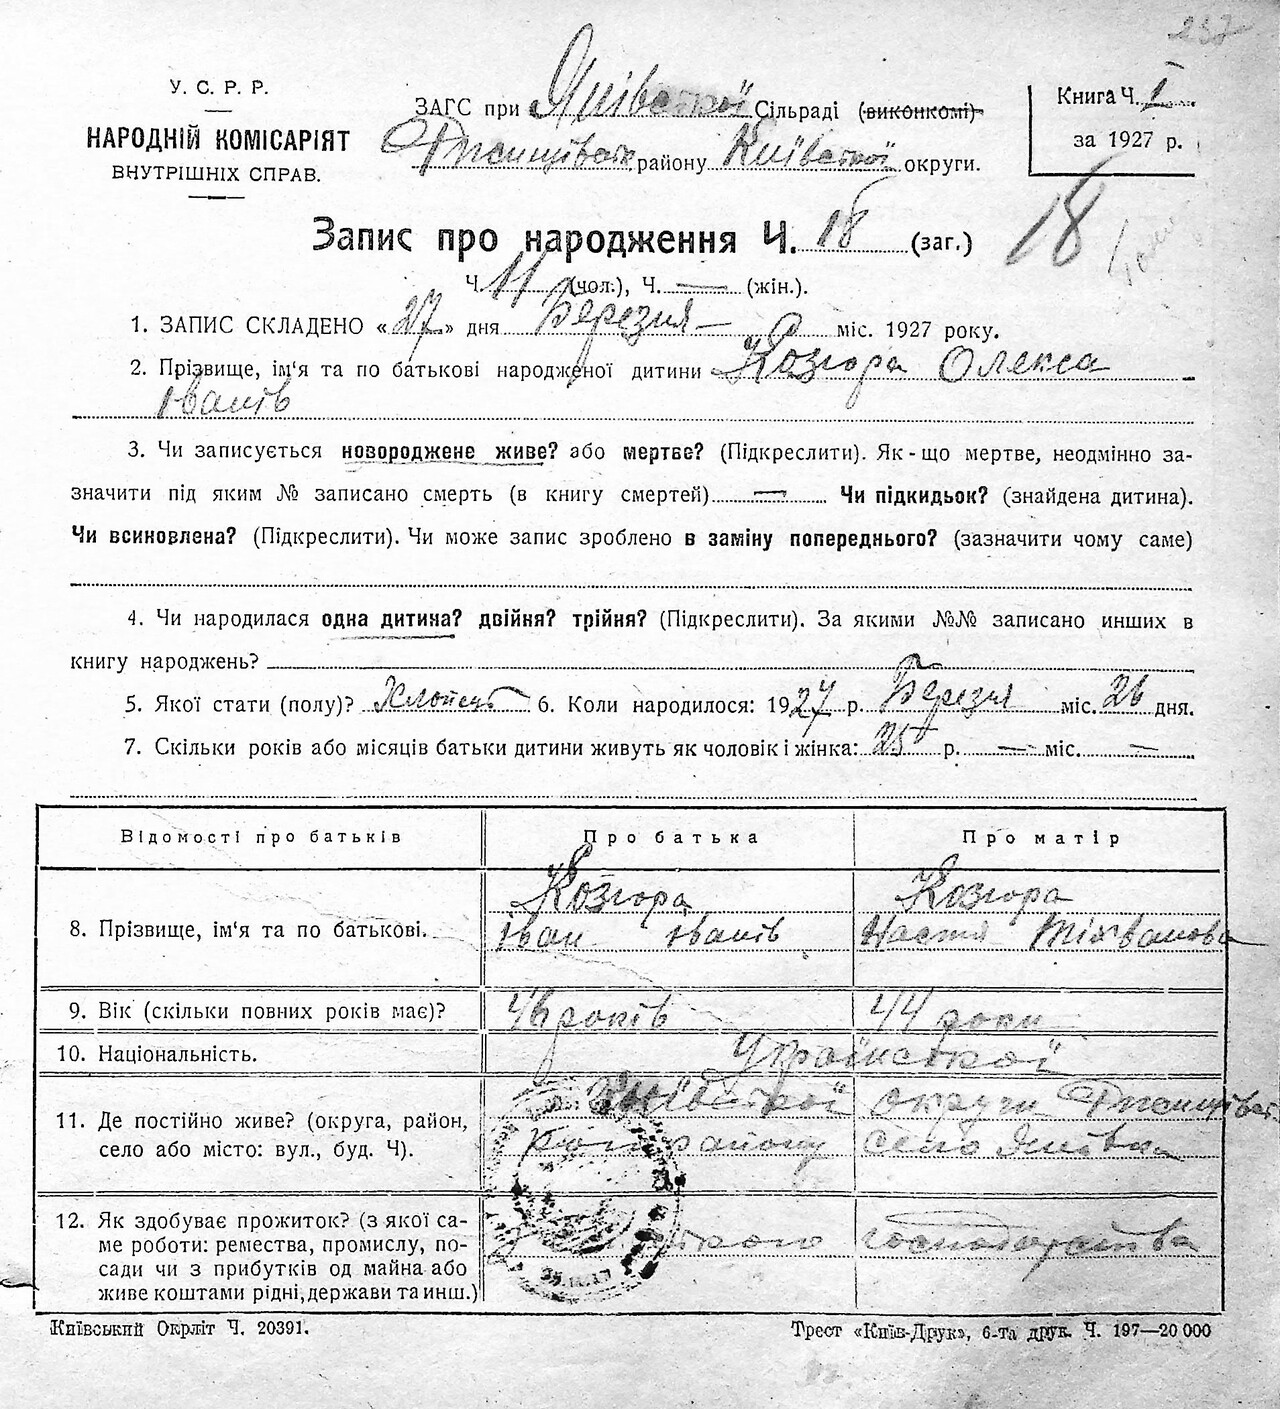 237
У. С. Р. Р.
НАРОДНІЙ КОМІСАРІЯТ
ВНУТРІШНІХ СПРАВ.
ЗАГС при Янівської Сільраді (виконкомі)
Ржищівськ району Київської округи.
Книга Ч. I
за 1927 р.
Запис про народження Ч. 18 (заг.)
18
Ч. 11 (чол.), Ч. — (жін.).
1. ЗАПИС СКЛАДЕНО «27» дня Березня — міс. 1927 року.
2. Прізвище, ім‘я та по батькові народженої дитини Козюра Олекса
Іванів
3. Чи записується новороджене живе? або мертве? (Підкреслити). Як-що мертве, неодмінно за-
значити під яким № записано смерть (в книгу смертей) — Чи підкидьок? (знайдена дитина).
Чи всиновлена? (Підкреслити). Чи може запис зроблено в заміну попереднього? (зазначити чому саме)
4. Чи народилася одна дитина? двійня? трійня? (Підкреслити). За якими №№ записано инших в
книгу народжень?
5. Якої стати (полу)? Хлопець 6. Коли народилося: 1927 р. Березня міс. 26 дня.
7. Скільки років або місяців батьки дитини живуть як чоловік і жінка: 25 р. — міс. —
Відомості про батьків Про батька Про матір
8. Прізвище, ім‘я та по батькові.
Козюра Козюра
Іван Іванів Настя
9. Вік (скільки повних років має)? 46 років 44 роки
10. Національність. Української
11. Де постійно живе? (округа, район,
село або місто: вул., буд. Ч).
Київської округи Ржищівськ
району село Янівка
12. Як здобуває прожиток? (з якої са-
ме роботи: ремества, промислу, по-
сади чи з прибутків од майна або
живе коштами рідні, держави та инш.)
господарства
Київський Окрліт Ч. 20391.
Трест «Київ-Друк», 6-та друк. Ч. 197—20 000